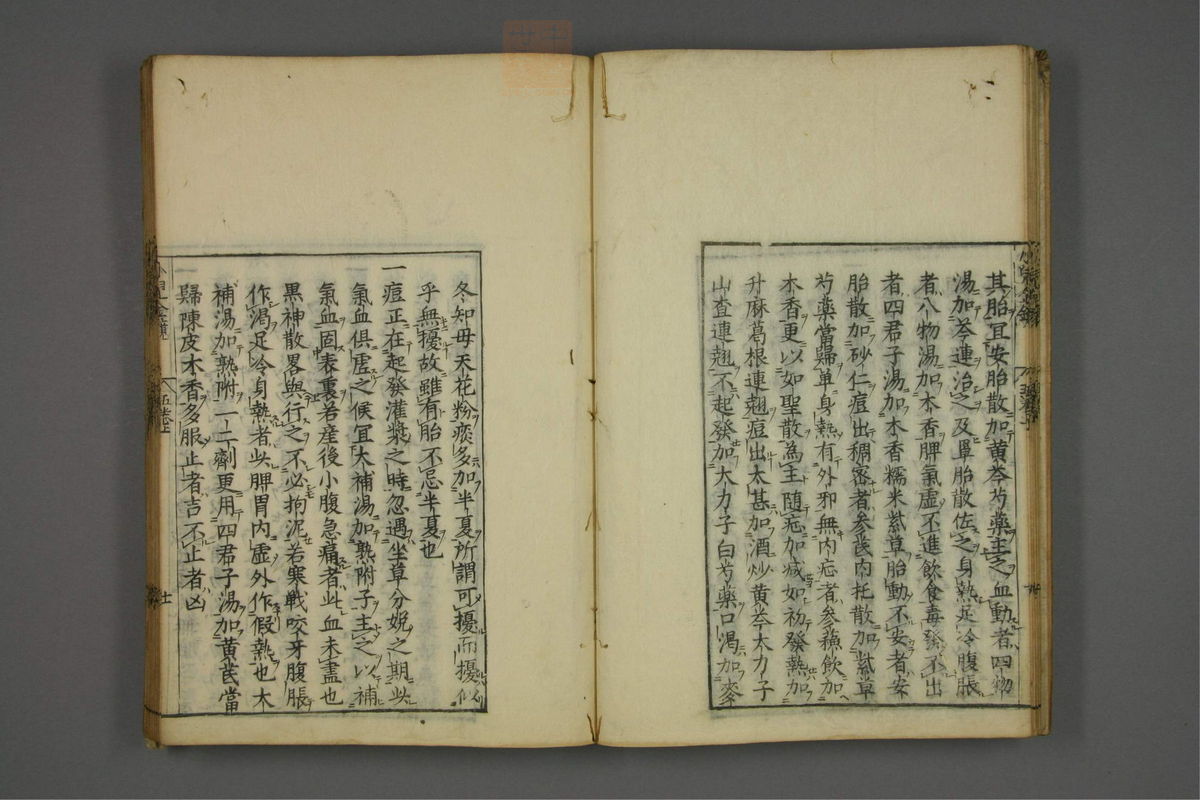 其胎宜安胎散加黄芩芍藥主之血動者四物
湯加芩連治之及罩胎散佐之身熱足冷腹脹
者八物湯加木香脾氣虛不進飲食毒發不出
者四君子湯加木香糯米紫草胎動不安者安
胎散加砂仁痘出稠密者參芪內托散加紫草
芍藥當歸單身熱有外邪無內疟者參蘓飲加
木香更以如聖散為主随疟加减如初發熱加
升麻葛根連翹痘出太甚加酒炒黄芩太力子
山査連翹不起發加大力子白芍藥口渴加麥
冬知母天花粉痰多加半夏所謂可擾而擾似
乎無擾故雖有胎不忌半夏也
一痘正在起發灌漿之時忽遇坐草分娩之期此
氣血俱虛之候宜大補湯加熟附子主之以補
氣血固表裏若産後小腹急痛者此血未盡也
黒神散畧與行之不必拘泥若寒戰咬牙腹脹
作渴足冷身熱者此脾胃内虛外作假熱也大
補湯加熟附一二劑更用四君子湯加黄芪當
歸陳皮木香多服止者吉不止者凶